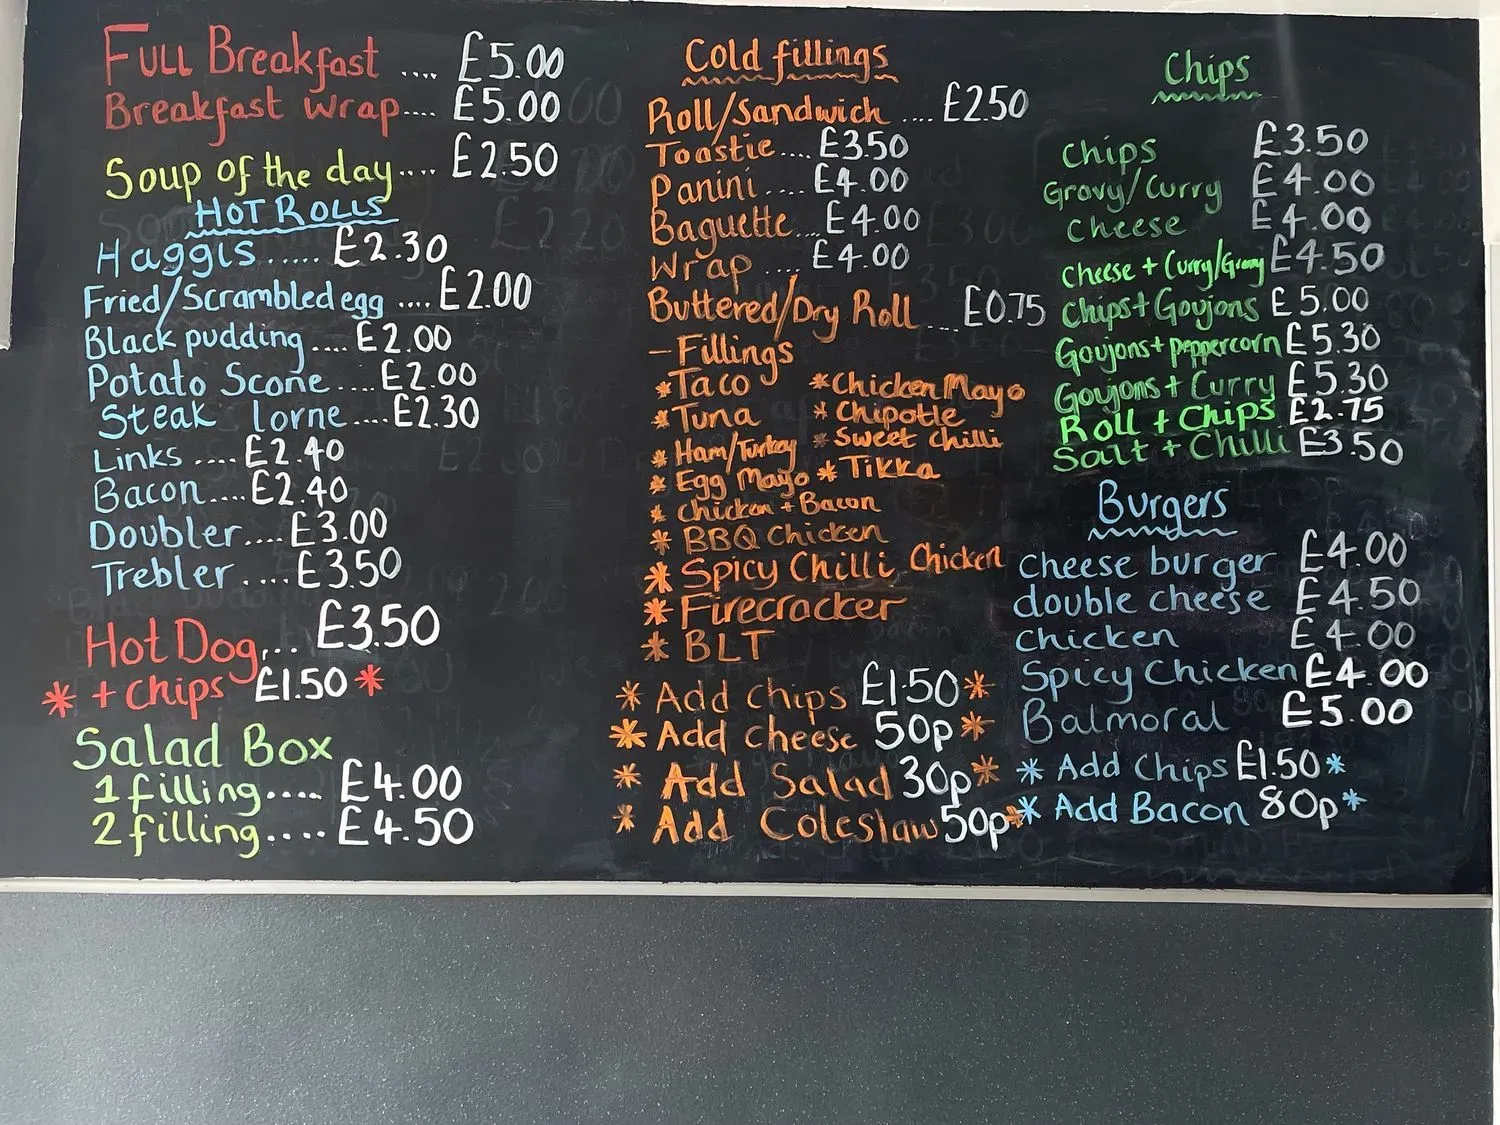 Full Breakfast .... £5.00
Breakfast wrap.... £5.00
Soup of the day.... £2.50
HOT ROLLS
Haggis ...... £2.30
Fried/Scrambled egg .... £2.00
Black pudding .... £2.00
Potato Scone .... £2.00
Steak lorne .... £2.30
Links .... £2.40
Bacon.... £2.40
Doubler.... £3.00
Trebler .... £3.50
Hot Dog... £3.50
* + chips £1.50 *
Salad Box
1 filling..... £4.00
2 filling.... £4.50
Cold fillings
Roll/Sandwich .... £2.50
Toastie .... £3.50
Panini .... £4.00
Baguette... £4.00
Wrap .... £4.00
Buttered/Dry Roll .... £0.75
- Fillings
* Taco * Chicken Mayo
* Tuna * Chipotle
* Ham/Turkey * Sweet chilli
* Egg Mayo * Tikka
* Chicken + Bacon
* BBQ Chicken
* Spicy Chilli Chicken
* Firecracker
* BLT
* Add chips £1.50 *
* Add cheese 50p *
* Add Salad 30p *
* Add Coleslaw 50p *
Chips
Chips £3.50
Gravy/Curry £4.00
Cheese £4.00
Cheese + Curry/Gravy £4.50
Chips + Goujons £5.00
Goujons + peppercorn £5.30
Goujons + Curry £5.30
Roll + Chips £2.75
Salt + Chilli £3.50
Burgers
Cheese burger £4.00
double cheese £4.50
Chicken £4.00
Spicy Chicken £4.00
Balmoral £5.00
* Add Chips £1.50 *
* Add Bacon 80p *